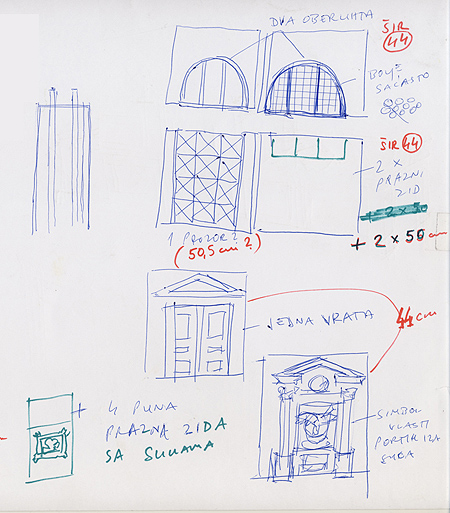 DVA OBERLIHTA
ŠIR
44
BOLJE
SAĆASTO
ŠIR 44
2 X
PRAZNI
ZID
+ 2 x 50 cm
1 PROZOR?
(50,5 cm?)
44 cm
JEDNA VRATA
4 PUNA
PRAZNA ZIDA
SA SLIKAMA
SIMBOL
VLASTI
PORTIK IZA